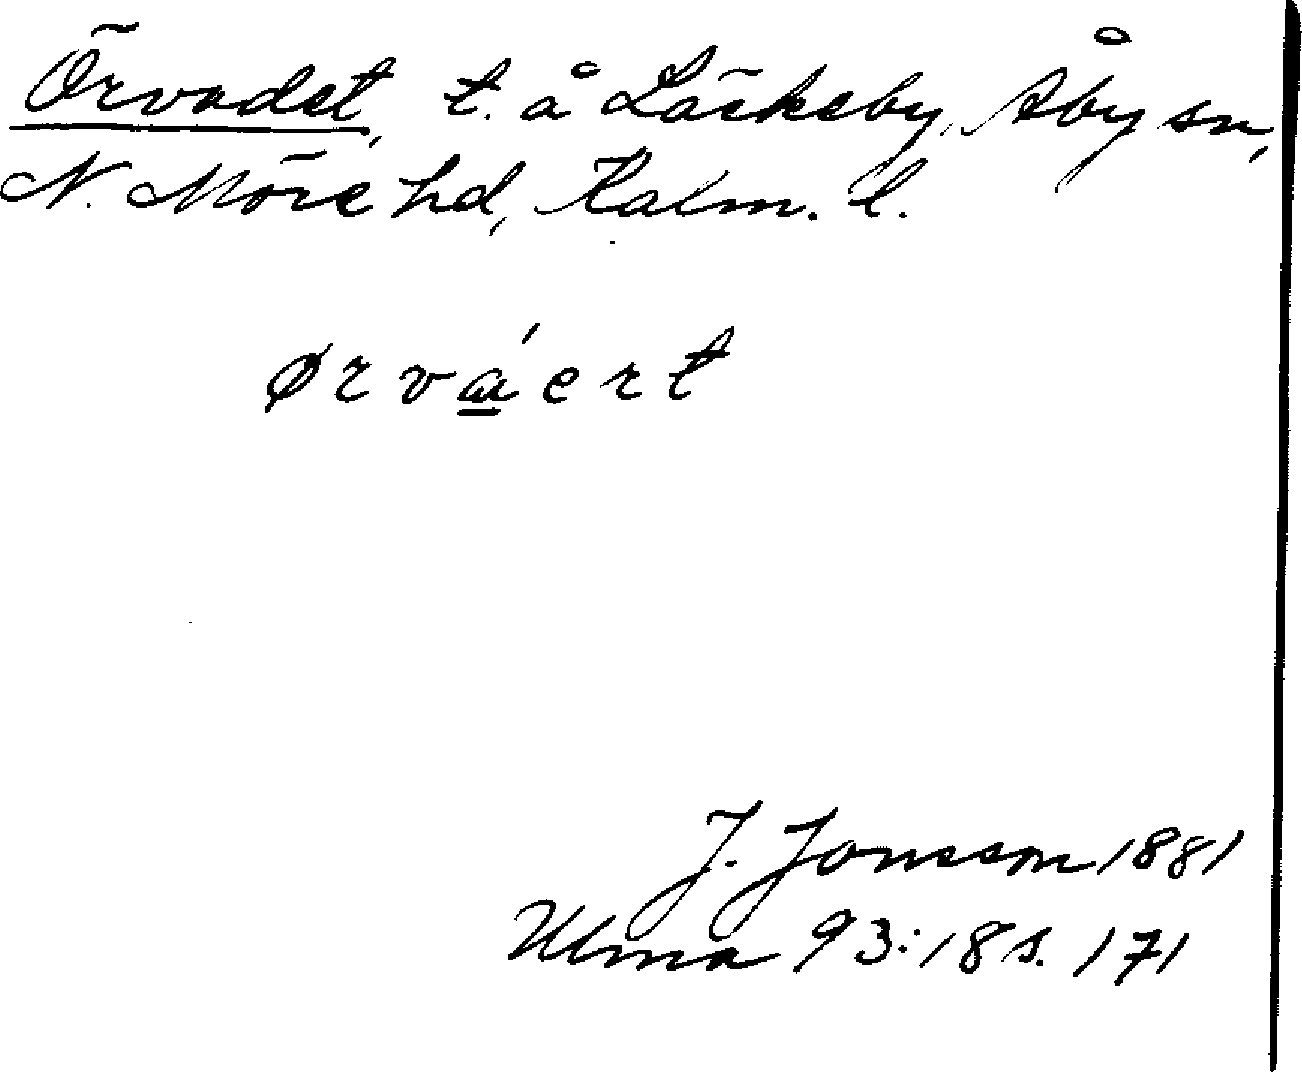 Örvadet, t. å Läckeby, Åby sn,
N. Möre hd, Kalm. l.
ørváert
J. Jonsson 1881
Ulma 93:18 s. 171